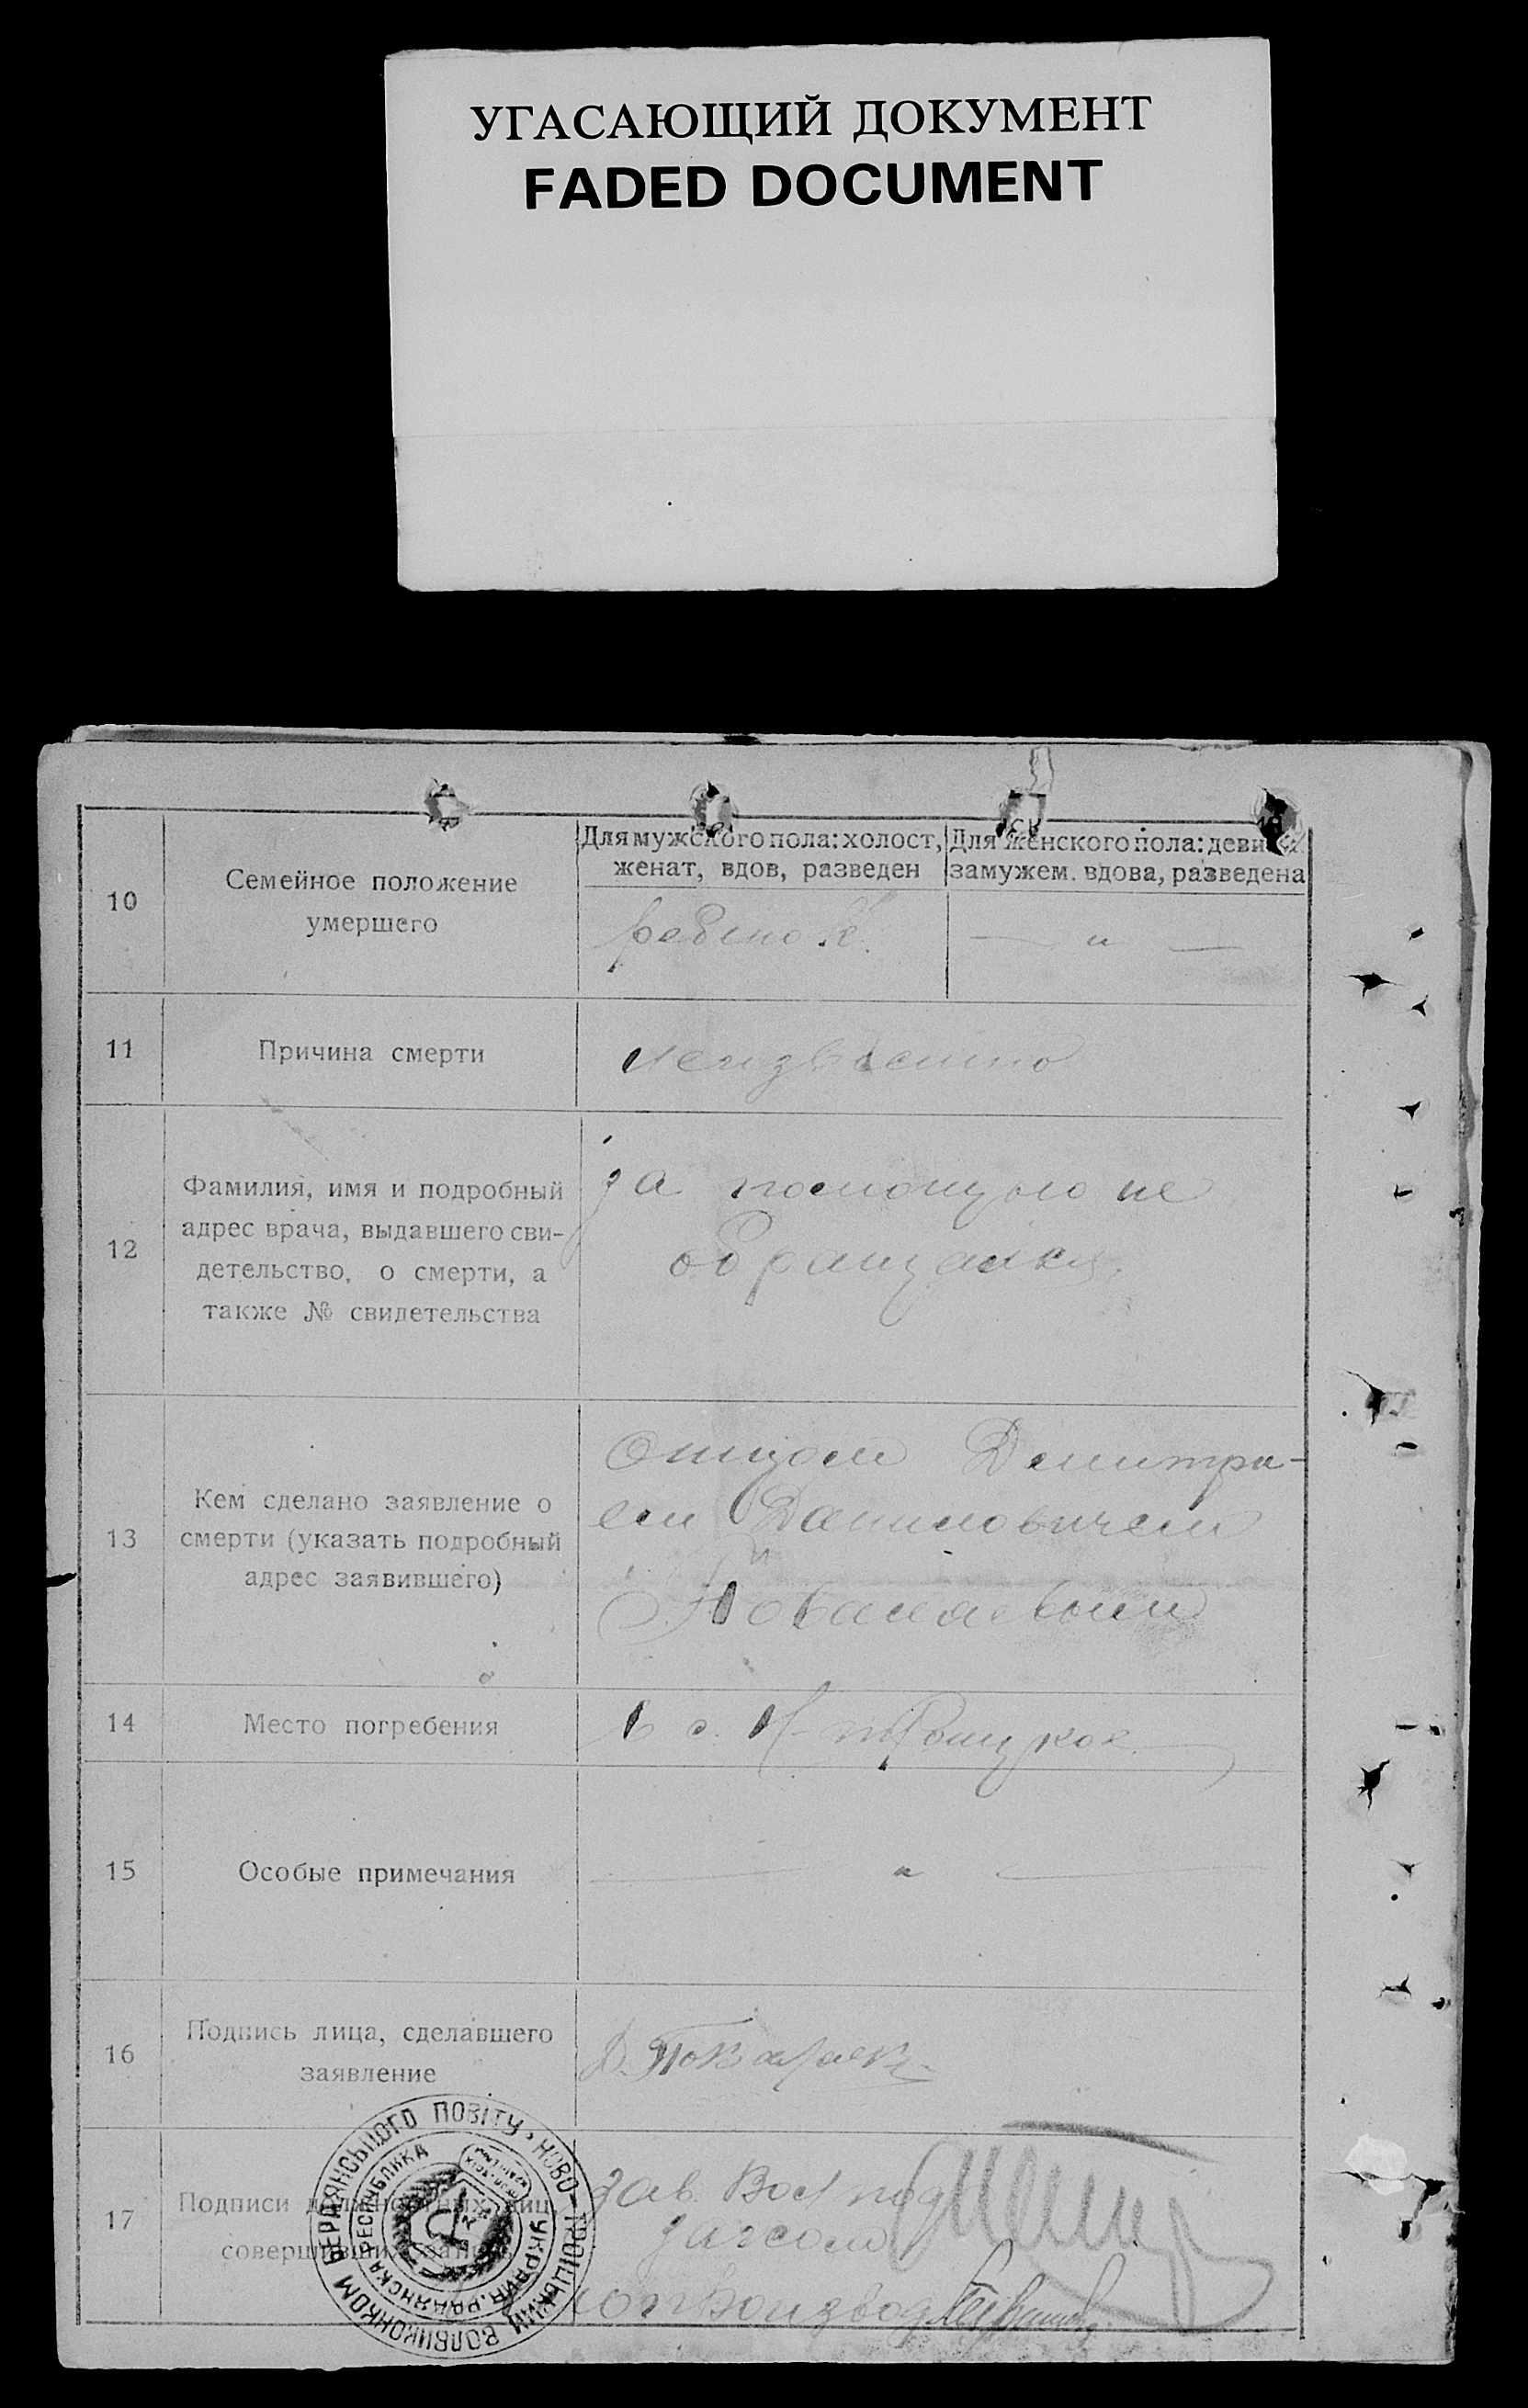 УГАСАЮЩИЙ ДОКУМЕНТ
FADED DOCUMENT
10
Семейное положение
умершего
Для мужского пола: холост,
женат, вдов, разведен
Для женского пола:
замужем. вдова, разведена
ребенок.
— „ —
11
Причина смерти
неизвестно
12
Фамилия, имя и подробный
адрес врача, выдавшего сви-
детельство, о смерти, а
также № свидетельства
за помощью не
обращались
13
Кем сделано заявление о
смерти (указать подробный
адрес заявившего)
Отцом Дмитри-
ем Даниловичем
14
Место погребения
в с. Н-Троицкое
15
Особые примечания
— „ —
16
Подпись лица, сделавшего
заявление
17
Подписи должностных лиц
совершивших запись
Зав. Вол под
загсом
БЕРДЯНСЬКОГО ПОВІТУ, НОВО-ТРОІЦЬКИЙ ВОЛВИКОНКОМ
УКРАИН. РАДЯНСКА РЕСПУБЛІКА